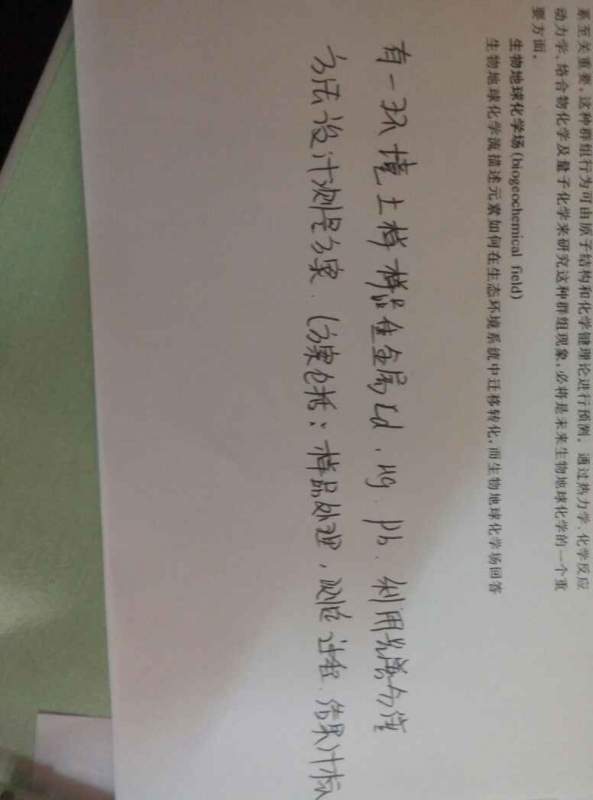 系至关重要。这种群组行为可由原子结构和化学键理论进行预测。通过热力学、化学反应
动力学、络合物化学及量子化学来研究这种群组现象，必将是未来生物地球化学的一个重
要方面。
生物地球化学场(biogeochemical field)
生物地球化学流描述元素如何在生态环境系统中迁移转化，而生物地球化学场回答
有一环境土样样品重金属Cd、Hg、Pb、利用光谱分析
方法设计测定方案．(方案包括：样品处理，测定过程、结果计标